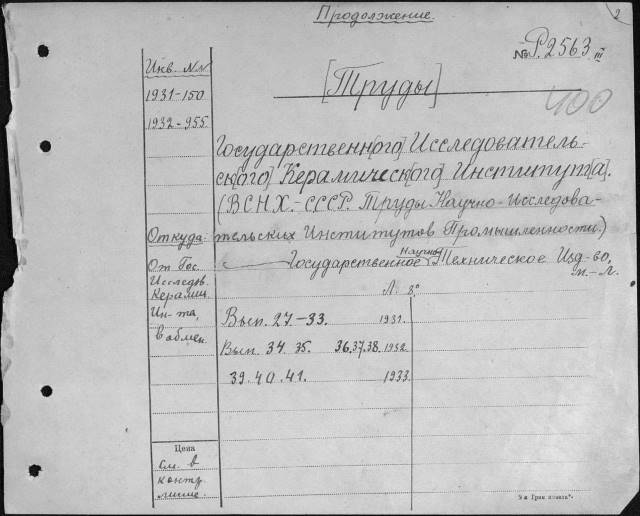 Продолжение.
2
№ Р.2563 III
[Труды]
400
Инв. №№
1931-150
1932-955
Государственн[ого] Исследователь-
ск[ого] Керамическ[ого] Институт[а].
(ВСНХ.-СССР. Труды Научно-Исследова-
тельских Институтов Промышленности.)
Откуда:
От Гос.
Исследов.
Керамич.
Ин-та,
в обмен.
Государственное Научно-Техническое Изд-во,
М.-Л.
Л. 8°
Вып. 27-33. 1931.
Вып. 34. 35. 36.37.38. 1932
39. 40. 41. 1933
Цена
См. в
контр.
листе.